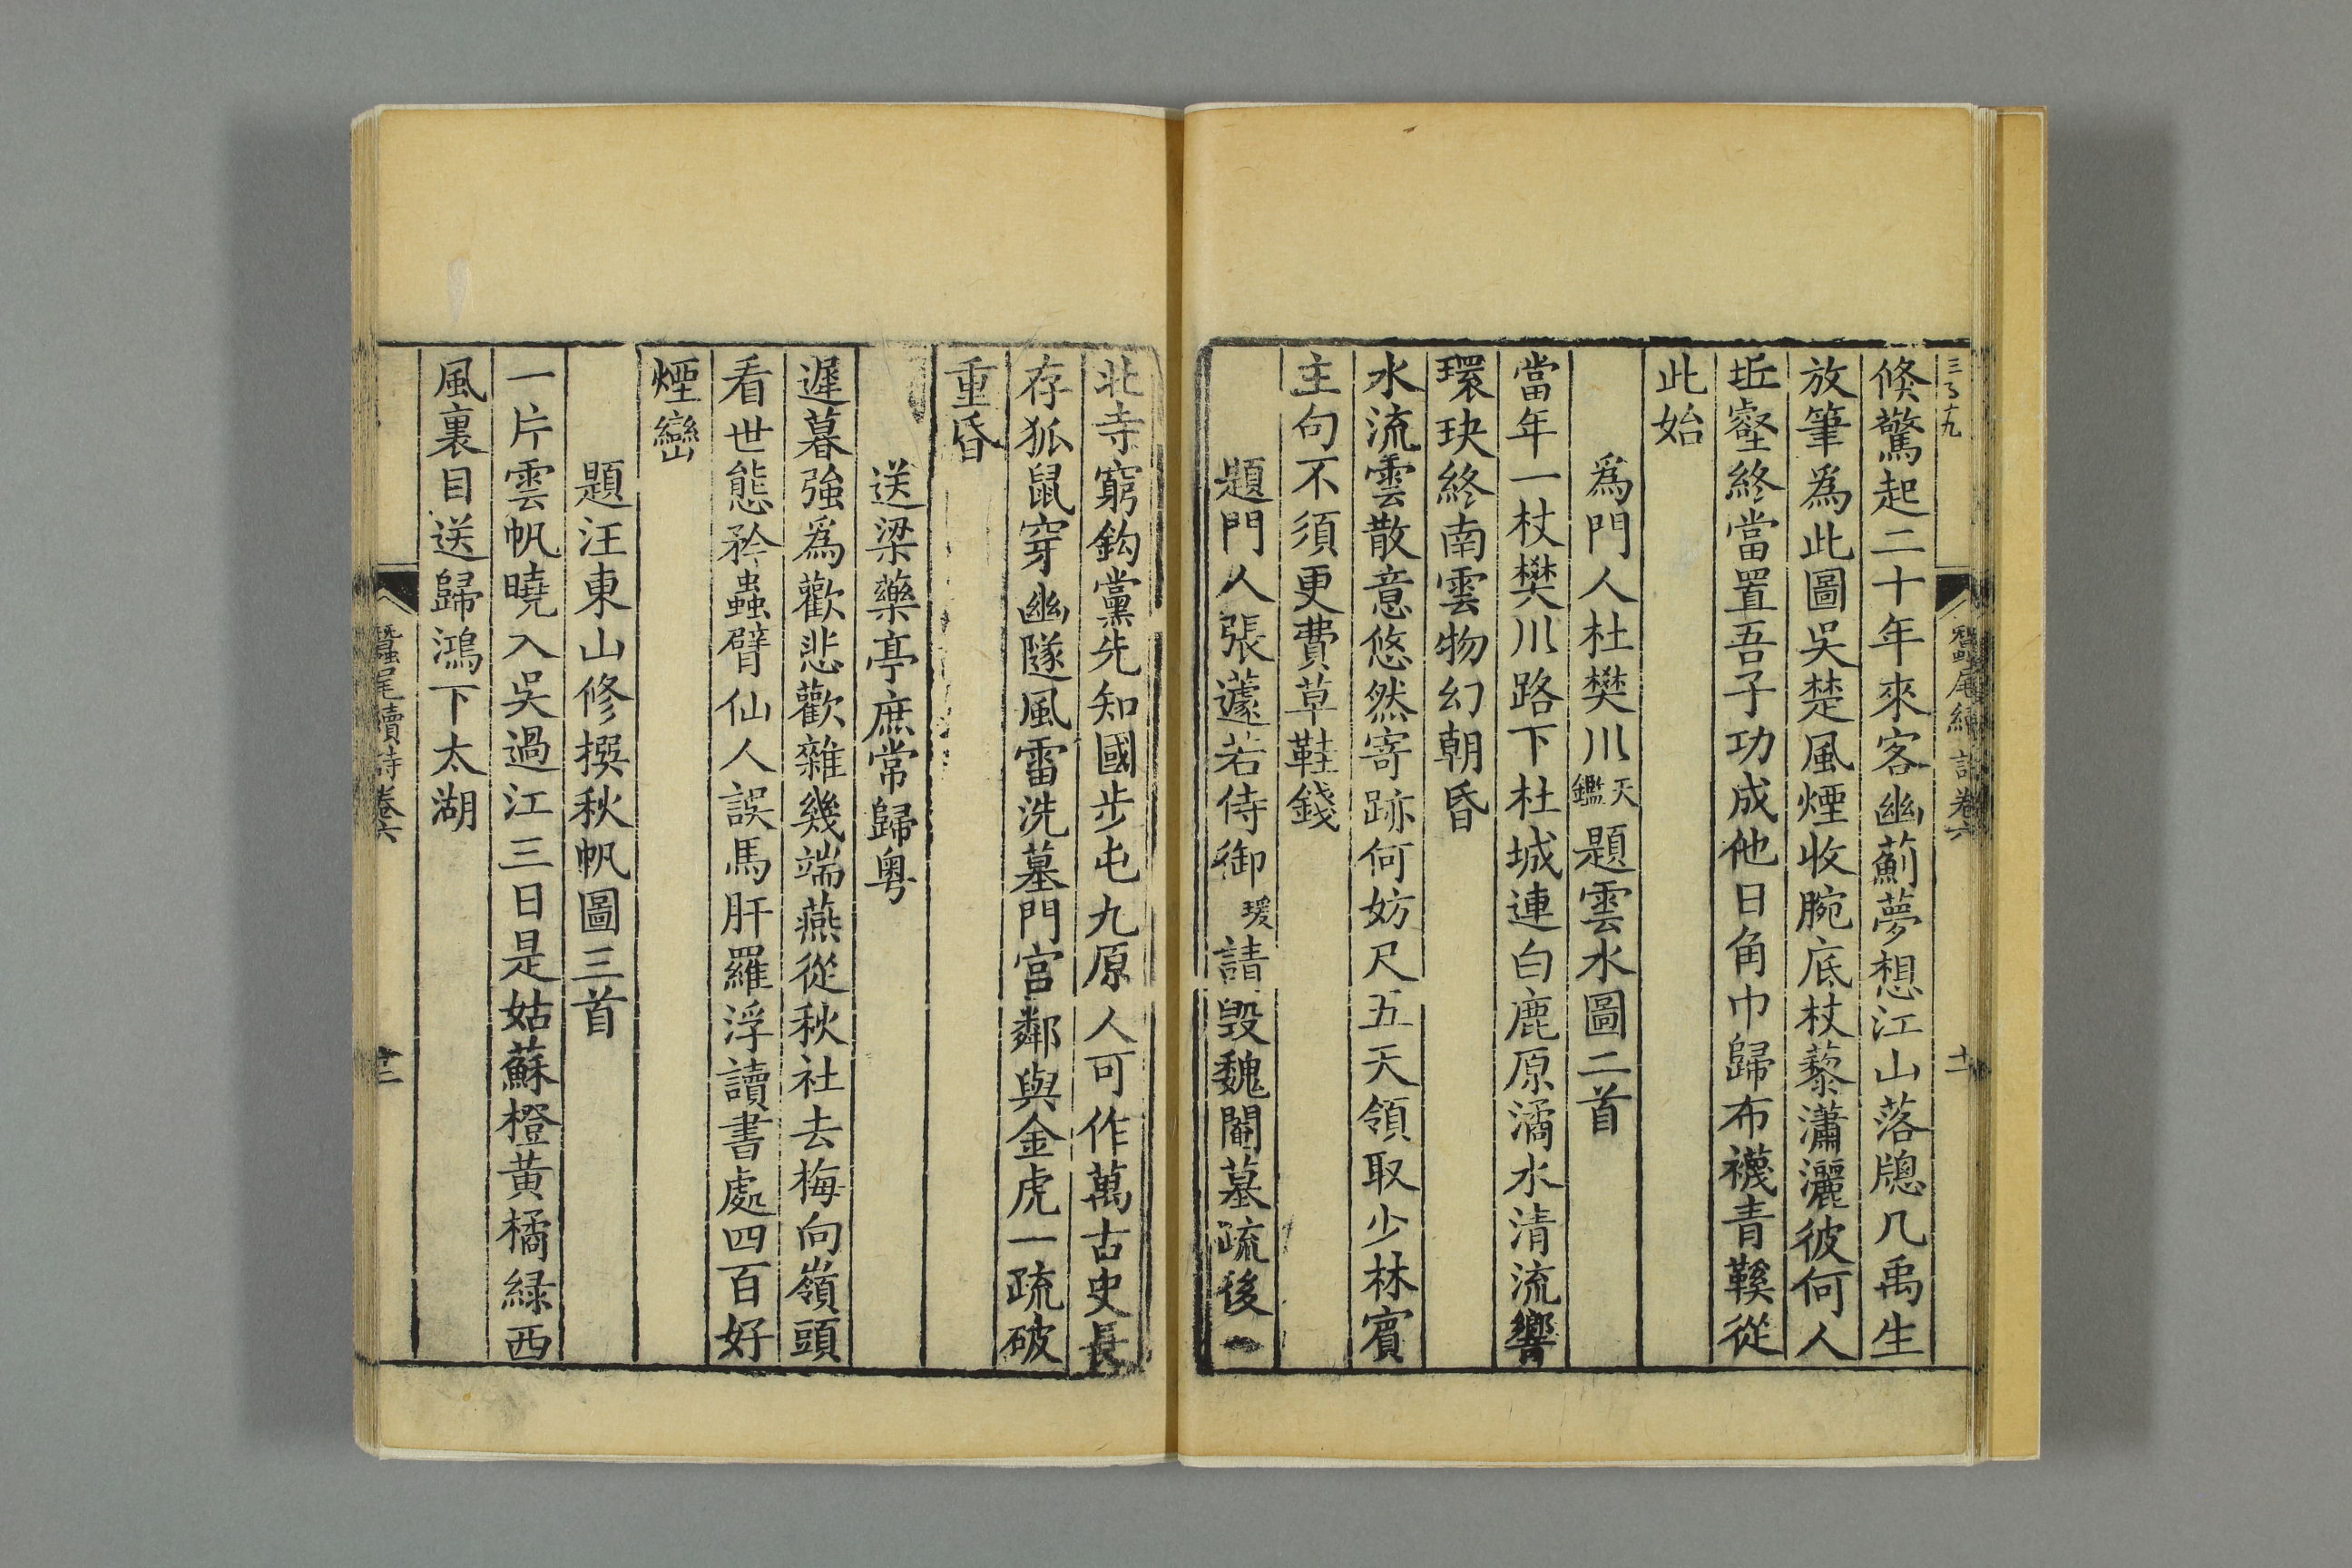 三百十九
蠶尾續詩卷六
十二
倏驚起二十年來客幽薊夢想江山落牕几禹生
放筆爲此圖吳楚風煙收腕底杖藜瀟灑彼何人
丘壑終當置吾子功成他日角巾歸布襪青鞵從
此始
爲門人杜樊川天鑑題雲水圖二首
當年一杖樊川路下杜城連白鹿原潏水清流響
環玦終南雲物幻朝昏
水流雲散意悠然寄跡何妨尺五天領取少林賓
主句不須更費草鞋錢
題門人張蘧若侍御瑗請毀魏閹墓疏後一
北寺窮鈎黨先知國步屯九原人可作萬古史長
存狐鼠穿幽隧風雷洗墓門宮鄰與金虎一疏破
重昏
送梁藥亭庶常歸粵
遲暮強爲歡悲歡雜幾端燕從秋社去梅向嶺頭
看世態矜蟲臂仙人誤馬肝羅浮讀書處四百好
煙巒
題汪東山修撰秋帆圖三首
一片雲帆曉入吳過江三日是姑蘇橙黄橘緑西
風裏目送歸鴻下太湖
蠶尾續詩卷六